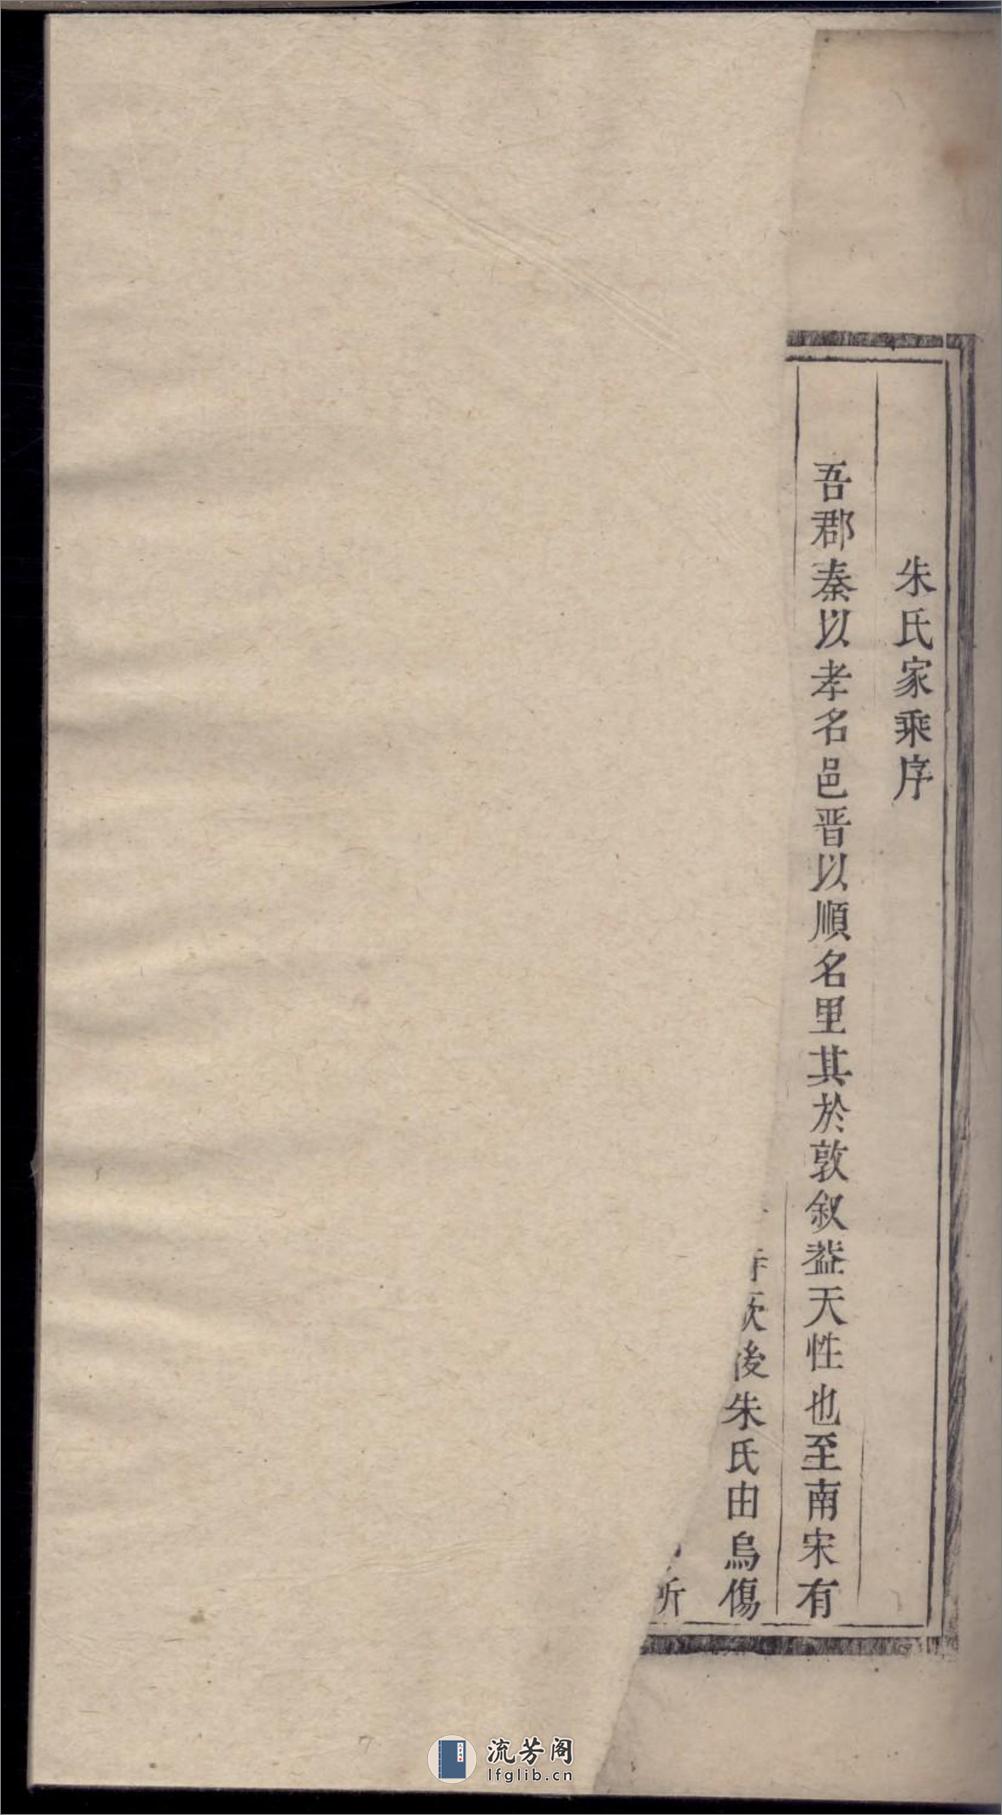 朱氏家乘序
吾郡秦以孝名邑晋以順名里其於敦叙葢天性也至南宋有
後朱氏由烏傷
所
流芳阁
lfglib.cn